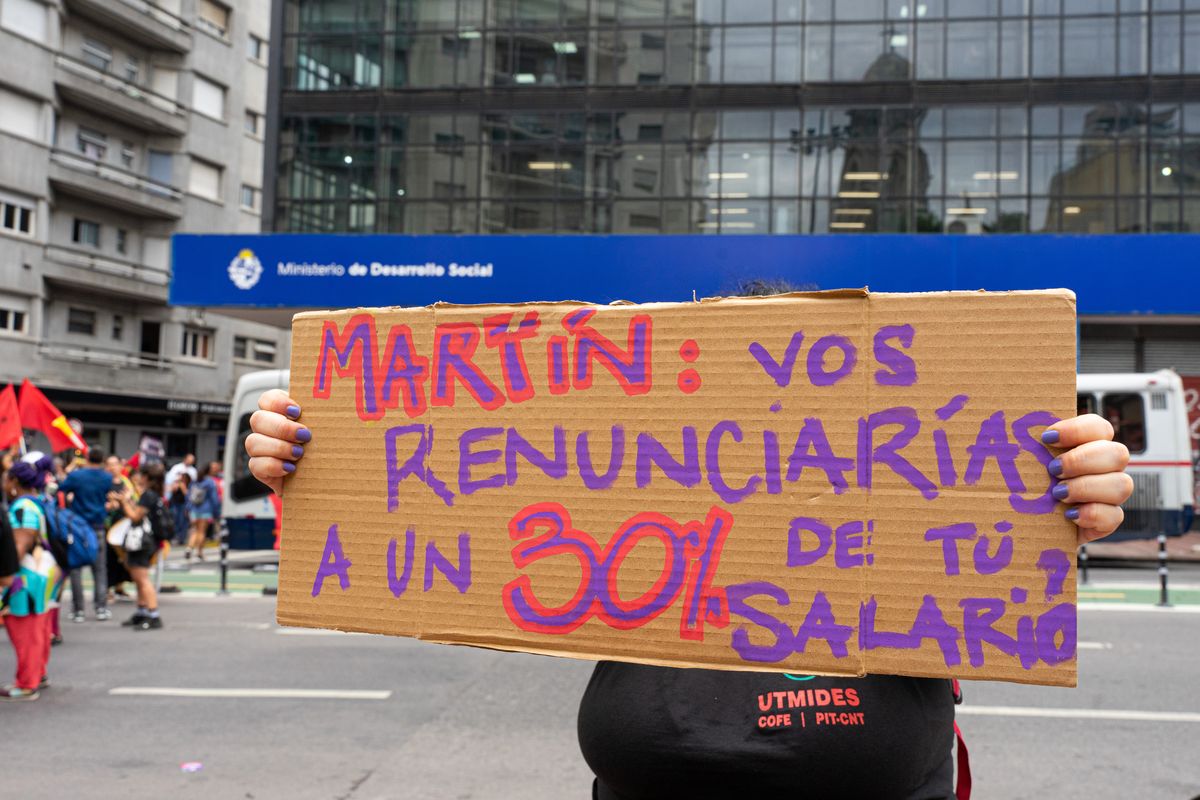 Ministerio de Desarrollo Social
MARTíN: VOS
RENUNCiARíAS
A UN 30% DE: TÚ
SALARiO?
UTMIDES
COFE | PIT-CNT